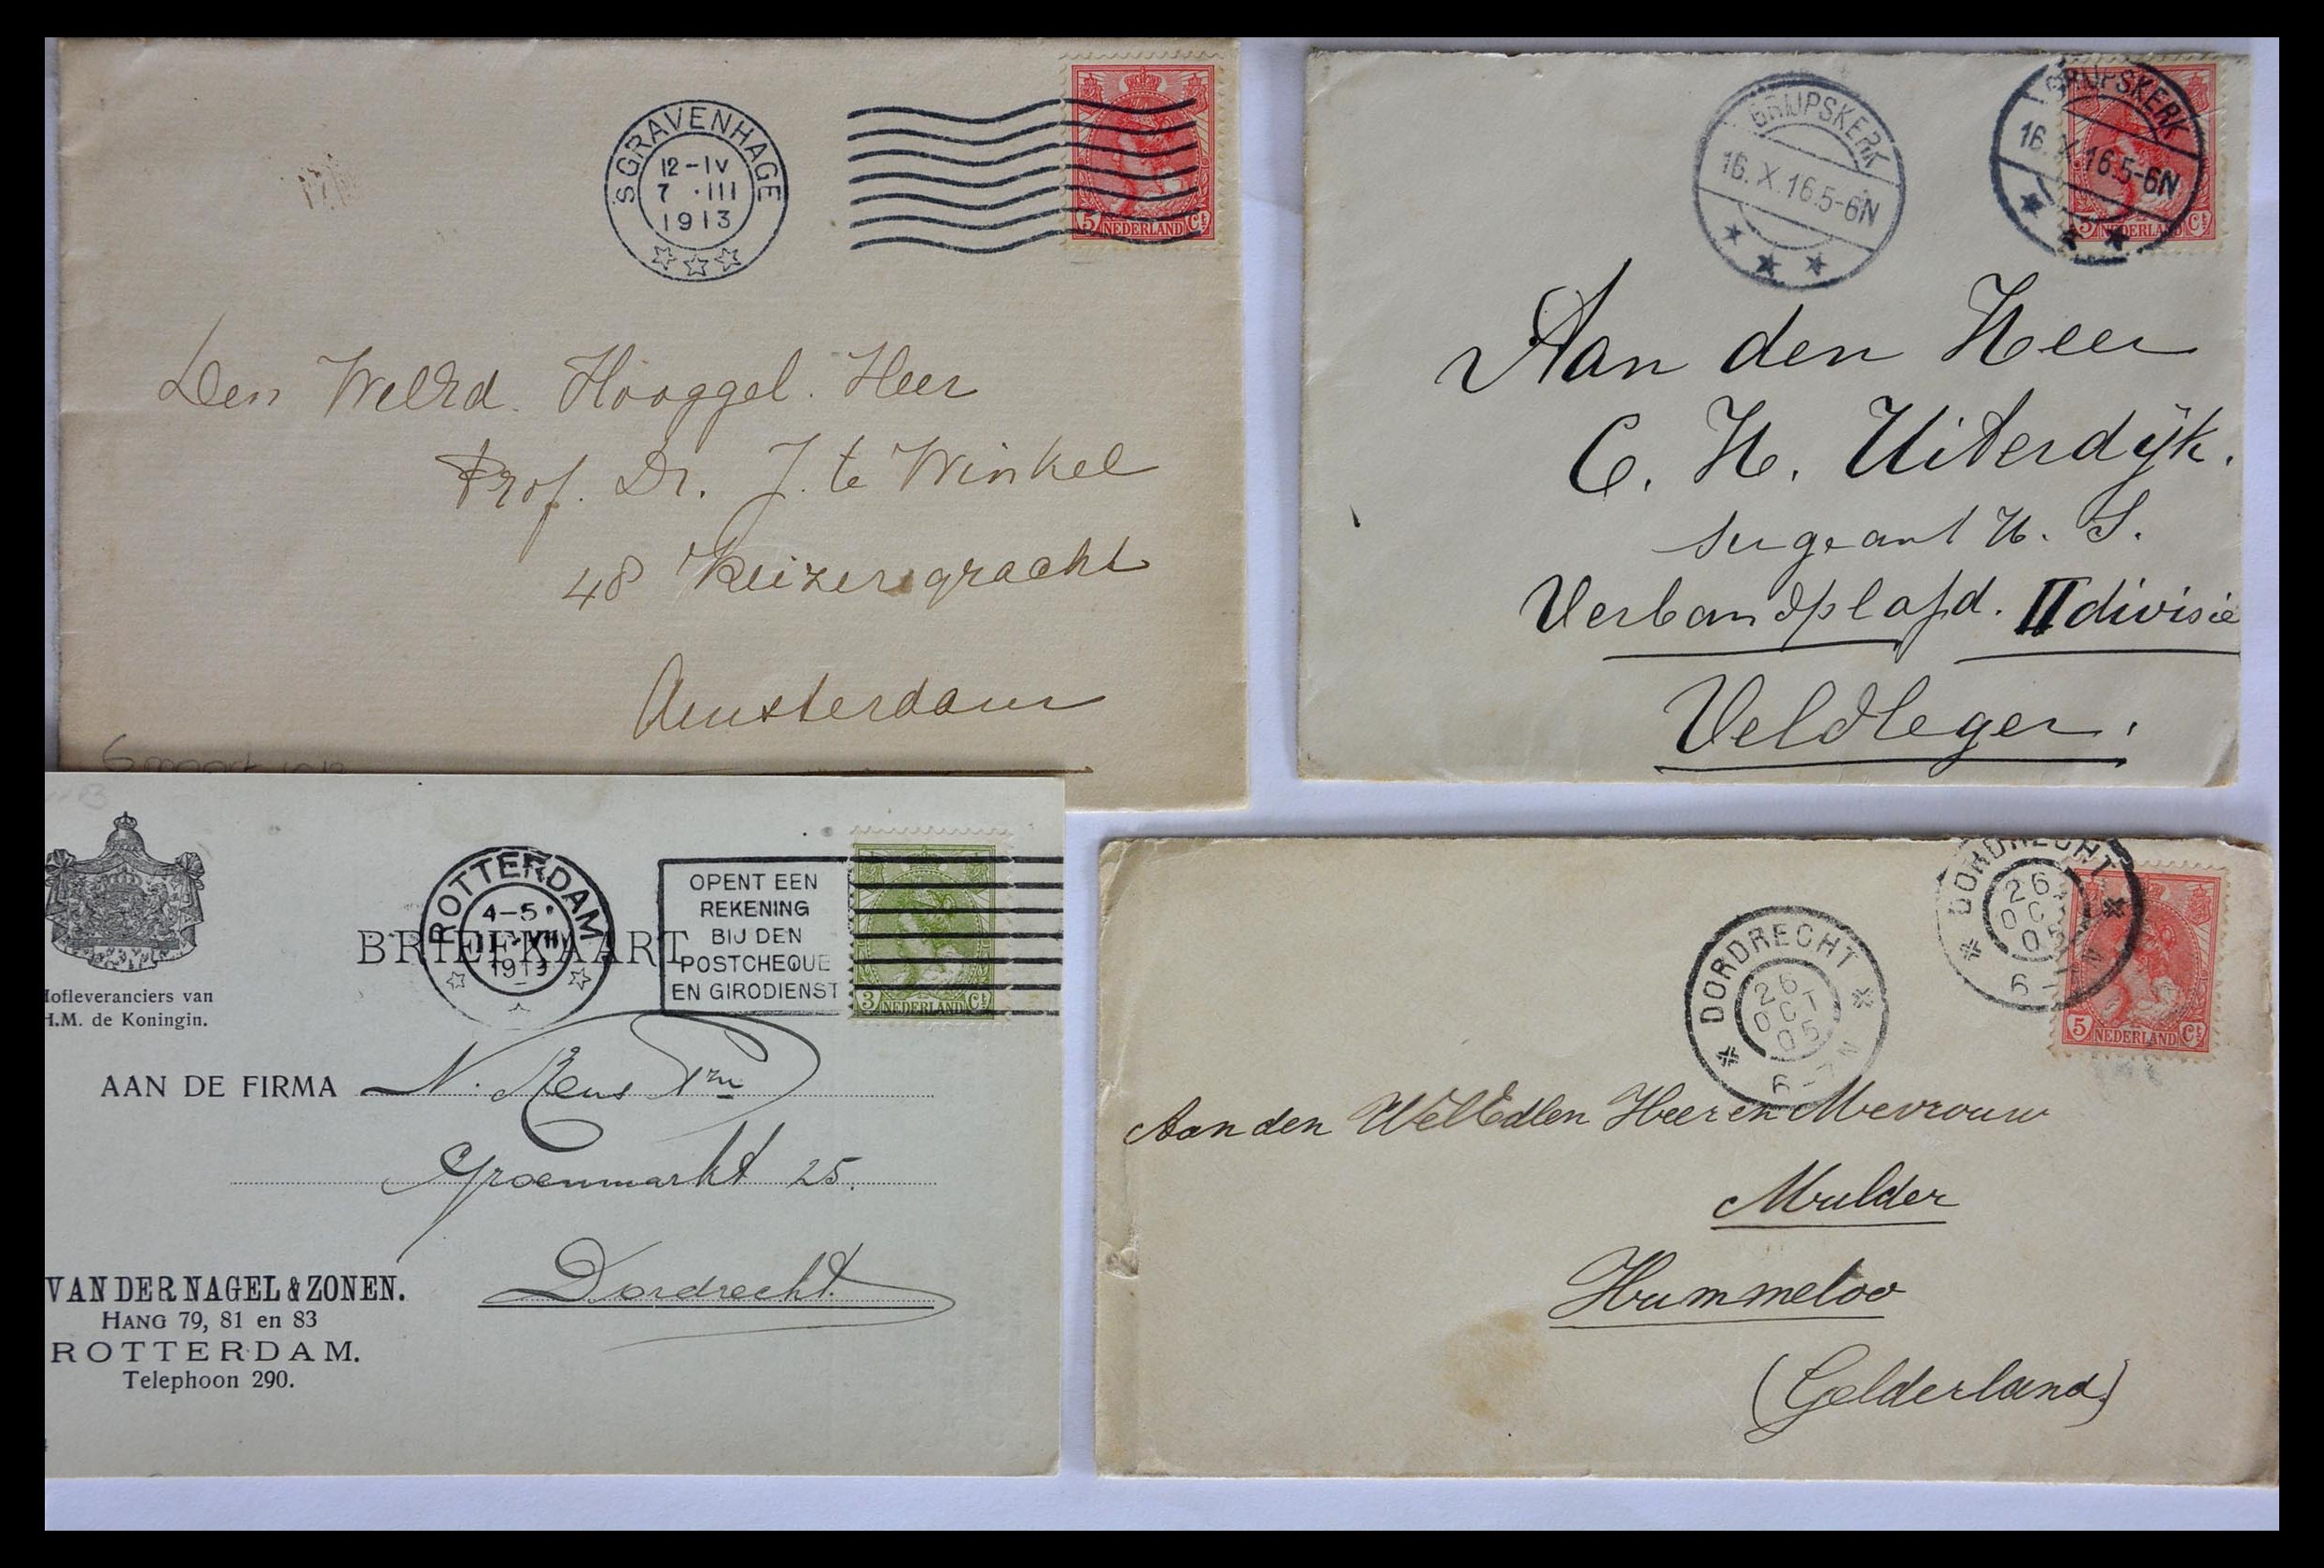 'S GRAVENHAGE
12-IV
7 · III
1913
5 NEDERLAND Ct
Den WelEd. Hooggel. Heer
Prof. Dr. J. te Winkel
48 Keizersgracht
Amsterdam
6 maart 1913
GRIJPSKERK
16.X.16.5-6N
GRIJPSKERK
16.X.16.5-6N
5 NEDERLAND Ct
Aan den Heer
C. H. Uiterdijk.
sergeant H. S.
Verbandpl afd. II divisie
Veldleger.
ROTTERDAM
4-5
1919
OPENT EEN
REKENING
BIJ DEN
POSTCHEQUE
EN GIRODIENST
3 NEDERLAND Ct
BRIEFKAART
Hofleveranciers van
H.M. de Koningin.
AAN DE FIRMA N. Rens
Groenmarkt 25.
Dordrecht.
VAN DER NAGEL & ZONEN.
HANG 79, 81 en 83
ROTTERDAM.
Telephoon 290.
DORDRECHT
26
OCT
05
6-7N
DORDRECHT
26
OCT
05
6-7N
5 NEDERLAND Ct
Aan den WelEdlen Heer en Mevrouw
Mulder
Hummeloo
(Gelderland)